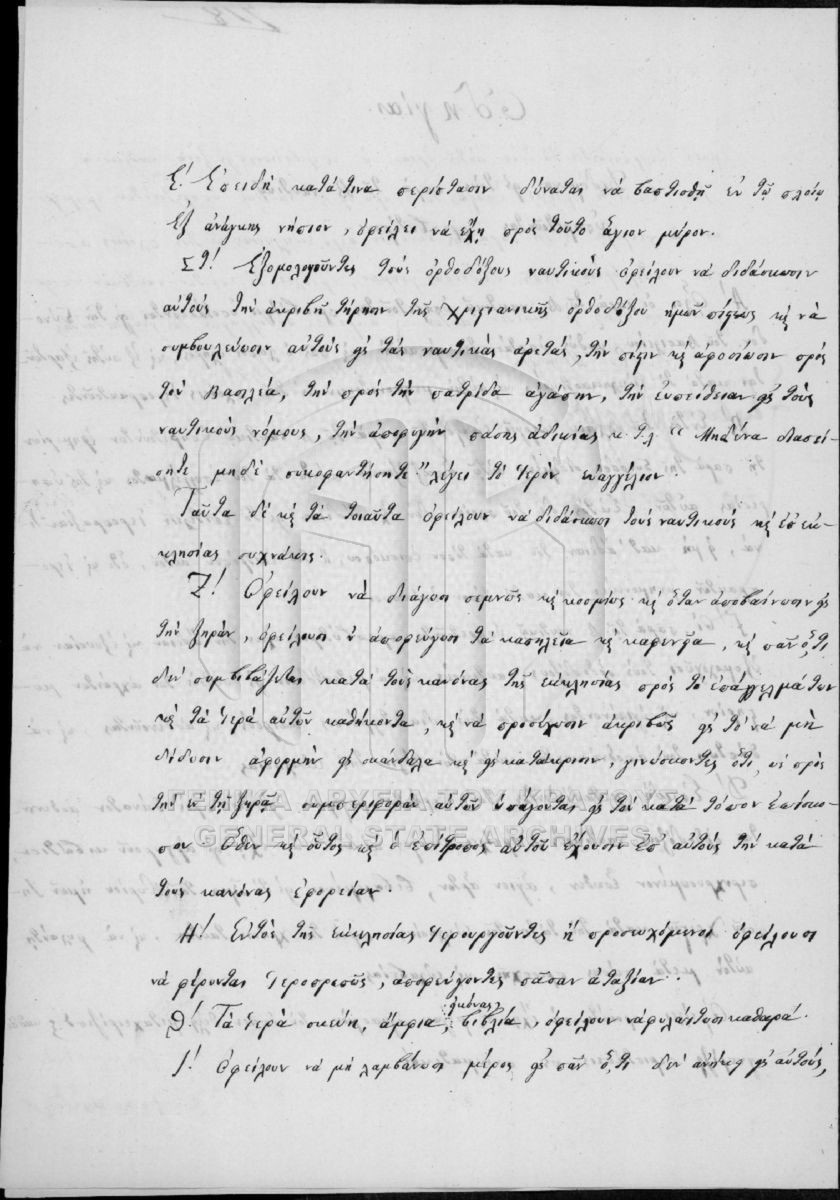 Ε! Επειδή κατά τινα περίστασιν δύναται νά βαπτισθῇ εν τῷ πλοίῳ
εξ ανάγκης νήπιον, οφείλει νά εχῃ πρός τοῦτο ἅγιον μύρον.
ΣΤ! Εξομολογοῦντες τούς ορθοδόξους ναυτικούς οφείλουν νά διδάσκωσιν
αὐτούς την ακριβῆ τήρησιν τῆς χριστιανικῆς ορθοδόξου ημῶν πίστεως κ νὰ
συμβουλεύωσιν αὐτούς εἰς τάς ναυτικάς αρετάς, την πίστιν κ αφοσίωσιν πρός
τόν Βασιλέα, την πρός την πατρίδα αγάπην, την ευπείθειαν εἰς τούς
ναυτικούς νόμους, την αποφυγήν πάσης αδικίας κ.τ.λ. "Μηδένα διασεί-
σητε μηδέ συκοφαντήσητε" λέγει τό Ιερόν ευαγγέλιον.
Ταῦτα δέ κ τά τοιαῦτα οφείλουν νά διδάσκωσι τούς ναυτικούς κ επ' εκ-
κλησίας συχνάκις.
Ζ! Οφείλουν νά διάγωσι σεμνῶς κ κοσμίως· κ ὅταν αποβαίνωσιν εἰς
την ξηράν, οφείλουσι ν' αποφεύγωσι τά καπηλεῖα κ καφενεῖα, κ πᾶν ὅ,τι
δέν συμβιβάζεται κατά τούς κανόνας τῆς εκκλησίας πρός τό επάγγελμά των
κ τά ιερά αὐτῶν καθήκοντα, κ νά προσέχωσιν ακριβῶς εἰς τό νά μή
δίδωσιν αφορμήν εἰς σκάνδαλα κ εἰς κατάκρισιν, γινώσκοντες ὅτι, ως πρός
την εν τῇ ξηρᾷ συμπεριφοράν αὐτῶν υπάγονται εἰς τόν κατά τόπον επίσκο-
πον. Οθεν κ οὗτος κ ο επίτροπος αὐτοῦ ἔχουσιν επ' αὐτούς την κατά
τούς κανόνας εφορείαν.
Η! Εντός τῆς εκκλησίας ιερουργοῦντες ή προσευχόμενοι οφείλουσι
νά φέρωνται ιεροπρεπῶς, αποφεύγοντες πᾶσαν αταξίαν.
Θ! Τά ιερά σκεύη, άμφια, εἰκόνας, βιβλία, οφείλουν νά φυλάττωσι καθαρά.
Ι! Οφείλουν νά μή λαμβάνωσι μέρος εἰς πᾶν ὅ,τι δέν ανήκει εἰς αὐτούς,
ΓΕΝΙΚΑ ΑΡΧΕΙΑ ΤΟΥ ΚΡΑΤΟΥΣ
GENERAL STATE ARCHIVES